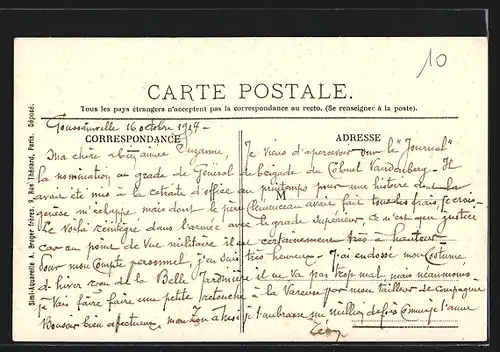 10
CARTE POSTALE.
Tous les pays étrangers n'acceptent pas la correspondance au recto. (Se renseigner à la poste).
CORRESPONDANCE
ADRESSE
M
Simi-Aquarelle A. Breger Frères, 9 Rue Thénard, Paris. Déposé.
Goussainville 16 octobre 1914 -
Ma chère bien aimée Suzanne, Je viens d'apercevoir sur le "Journal"
la nomination au grade de Général de brigade du Colonel Vandenberg - Il
avait été mis à la retraite d'office au printemps pour une histoire dont la
genèse m'échappe mais dont le père Clemenceau avait fait tous les frais je crois -
Le voilà réintégré dans l'armée avec le grade supérieur, ce n'est que justice
car au point de vue militaire il est certainement très à hauteur -
Pour mon compte personnel, j'en suis très heureux - J'ai endossé mon costume
d'hiver de la Belle Jardinière il ne va pas trop mal mais néanmoins
je vais faire faire une petite retouche à la vareuse par mon tailleur de campagne
Bonsoir bien affectueux mon à toi je t'embrasse mille fois comme je t'aime
Léon